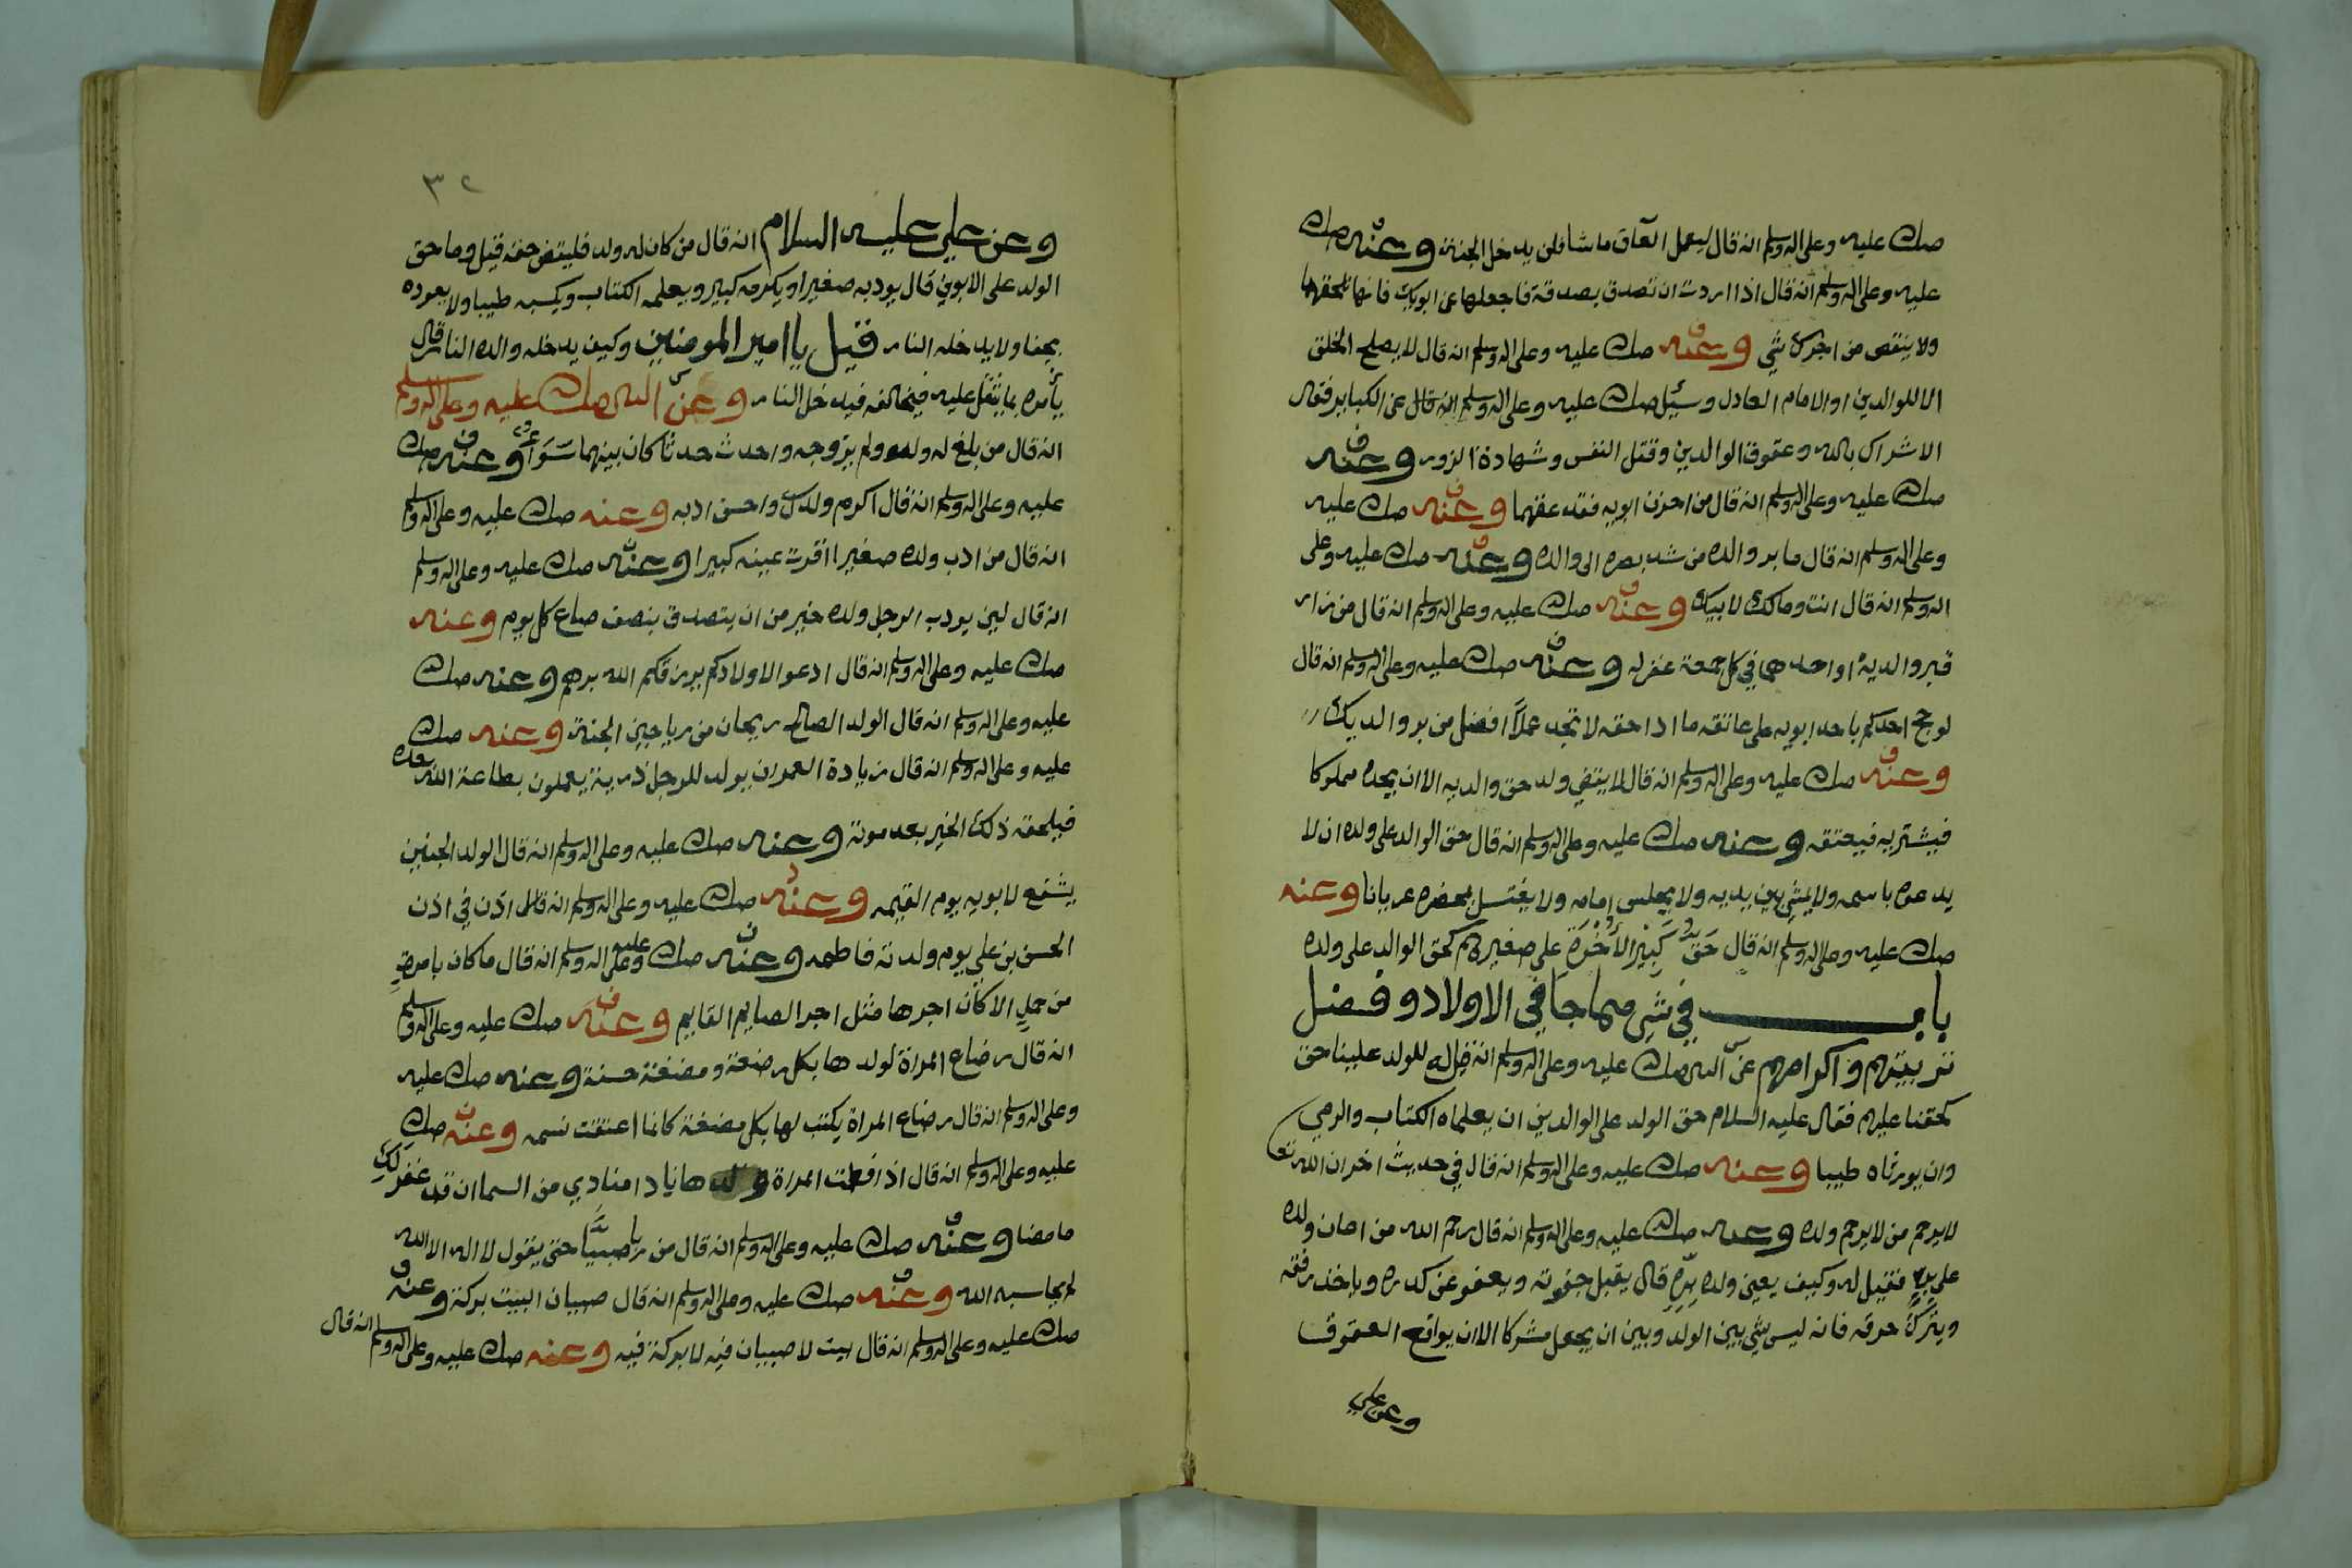 صلى عليه وعلى اله وسلم انه قال ليعمل العاق ما شا فلن يدخل الجنة وعنه صلى
عليه وعلى اله وسلم انه قال اذا اردت ان تصدق بصدقة فاجعلها عن ابويك فانها تلحقهما
ولا ينتقص من اجرك شي وعنه صلى عليه وعلى اله وسلم انه قال لا يصلح الملق
الا للوالدين او الامام العادل وسئيل صلى عليه وعلى اله وسلم عن الكباير فقال
الاشراك بالله وعقوق الوالدين وقتل النفس وشهادة الزور وعنه
صلى عليه وعلى اله وسلم انه قال من احزن ابويه فقد عقهما وعنه صلى عليه
وعلى اله وسلم انه قال ما بر والده من شد بصره الى والده وعنه صلى عليه وعلى
اله وسلم انه قال انت ومالك لابيك وعنه صلى عليه وعلى اله وسلم انه قال من زار
قبر والديه او احدهما في كل جمعة غفر له وعنه صلى عليه وعلى اله وسلم انه قال
لو حج احدكم باحد ابويه على عاتقه ما ادا حقه لا تجد عملا افضل من بر والديك
وعنه صلى عليه وعلى اله وسلم انه قال لا يقضي ولد حق والديه الا ان يجده مملوكا
فيشتريه فيعتقه وعنه صلى عليه وعلى اله وسلم انه قال حق الوالد على ولده ان لا
يدعوه باسمه ولا يمشي بين يديه ولا يجلس امامه ولا يغتسل بمحضره عريانا وعنه
صلى عليه وعلى اله وسلم انه قال حَق كَبِيْر الأخْوَة على صغيرهم كحق الوالد على ولده
باب في شي مما جا في الاولاد وفضل
تربيتهم واكرامهم عن النبي صلى عليه وعلى اله وسلم انه قيل له للولد علينا حق
كحقنا عليهم فقال عليه السلام حق الولد على الوالدين ان يعلماه الكتاب والرمي
وان يورثاه طيبا وعنه صلى عليه وعلى اله وسلم انه قال في حديث اخر ان الله تعا
لا يرحم من لا يرحم ولده وعنه صلى عليه وعلى اله وسلم انه قال رحم الله من اعان ولده
على بره فقيل له وكيف يعين ولده بره قال يقبل عفوته ويعفو عن كدره وياخذ رفقه
ويترك خرقه فانه ليس شي بين الولد وبين ان يجعل مشركا الا ان يواقع العقوق
وعن علي
٣٢
وعن علي عليه السلام انه قال من كان له ولد فليقض حقه قيل وما حق
الولد على الابوين قال يودبه صغيرا ويكرمه كبير ويعلمه الكتاب ويكسبه طيبا ولا يعوده
يجنا ولا يدخله النار قيل يا امير المومنين وكيف يدخله والده النار قال
يأمره بما يثقل عليه فيخالفه فيدخل النار وعن النبي صلى عليه وعلى اله وسلم
انه قال من بلغ له ولد ولم يزوجه واحدث حدثا كان بينهما سَوَاً وعنه صلى
عليه وعلى اله وسلم انه قال اكرم ولدك واحسن ادبه وعنه صلى عليه وعلى اله وسلم
انه قال من ادب ولده صغيرا اقرت عينه كبيرا وعنه صلى عليه وعلى اله وسلم
انه قال لين يودب الرجل ولده خير من ان يتصدق بنصف صاع كل يوم وعنه
صلى عليه وعلى اله وسلم انه قال ادعو الاولادكم يرزقكم الله برهم وعنه صلى
عليه وعلى اله وسلم انه قال الولد الصالح ريحان من رياحين الجنة وعنه صلى
عليه وعلى اله وسلم انه قال زيادة العمر ان يولد للرجل ذرية يعملون بطاعة الله بعده
فيلحقه ذلك الخير بعد موته وعنه صلى عليه وعلى اله وسلم انه قال الولد الجنين
يشفع لابويه يوم القيمه وعنه صلى عليه وعلى اله وسلم انه اذن في اذن
الحسن بن علي يوم ولدته فاطمه وعنه صلى عليه وعلى اله وسلم انه قال ما كان بامرة
من حمل الا كان اجرها مثل اجر الصايم القايم وعنه صلى عليه وعلى اله وسلم
انه قال رضاع المراة لولدها بكل رضعة ومضغة حسنة وعنه صلى عليه
وعلى اله وسلم انه قال رضاع المراة يكتب لها بكل مضغة كانما اعتقت نسمه وعنه صلى
عليه وعلى اله وسلم انه قال اذا فطمت المراة ولدها نادا منادي من السما ان قد غفر لك
ما مضا وعنه صلى عليه وعلى اله وسلم انه قال من ربا صبيًّا حتى يقول لا اله الا الله
لم يحاسبه الله وعنه صلى عليه وعلى اله وسلم انه قال صبيان البيت بركة وعنه
صلى عليه وعلى اله وسلم انه قال بيت لا صبيان فيه لا بركة فيه وعنه صلى عليه وعلى اله وسلم انه قال